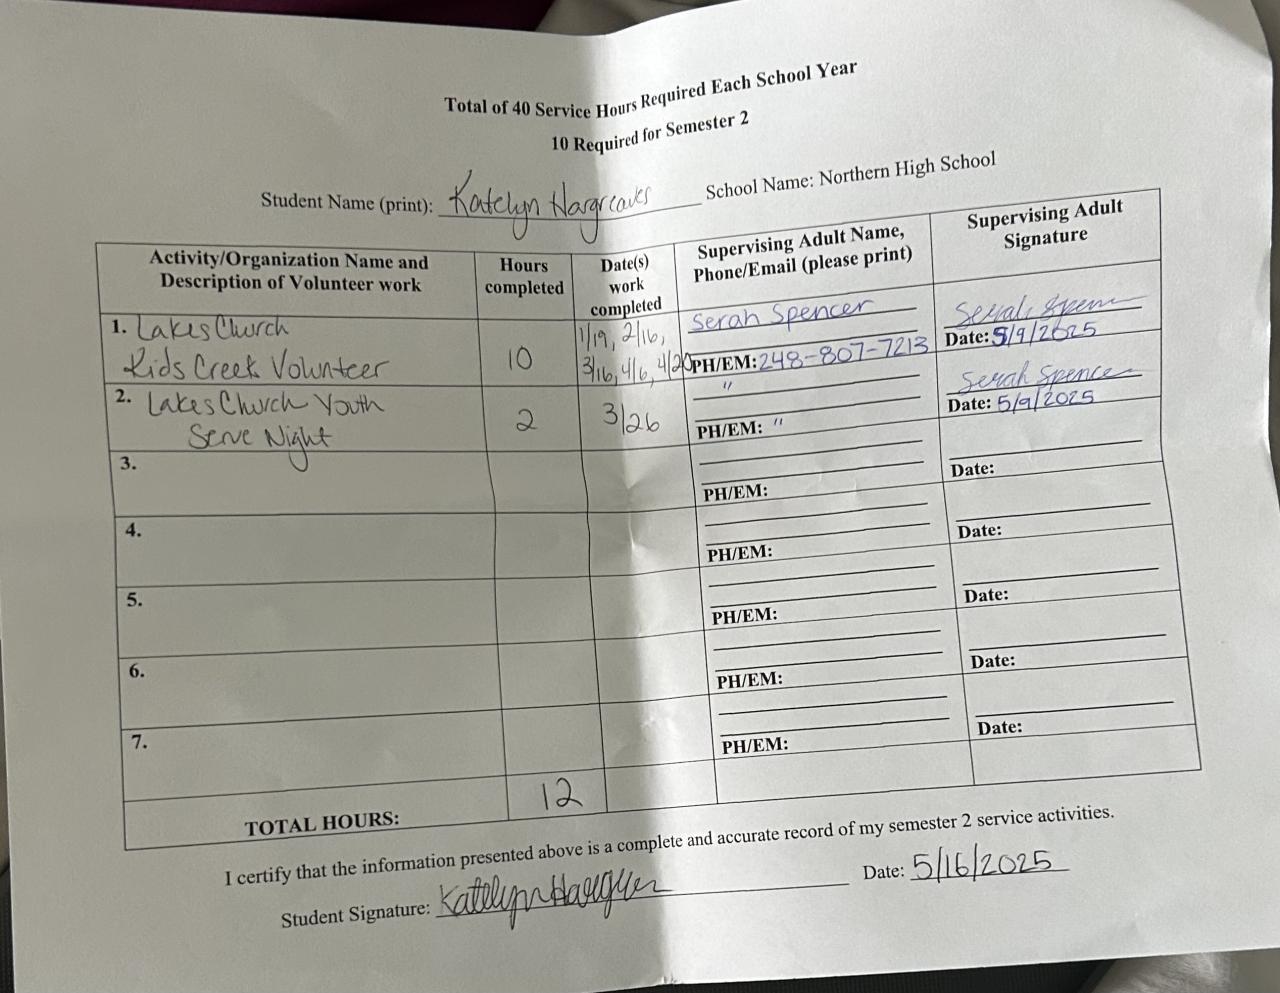 Total of 40 Service Hours Required Each School Year
10 Required for Semester 2
Student Name (print): Katelyn Hargreaves School Name: Northern High School
Activity/Organization Name and
Description of Volunteer work
Hours
completed
Date(s)
work
completed
Supervising Adult Name,
Phone/Email (please print)
Supervising Adult
Signature
1. Lakes Church
Kids Creek Volunteer
10
1/19, 2/16,
3/16, 4/6, 4/20
Serah Spencer
PH/EM: 248-807-7213
Serah Spencer
Date: 5/9/2025
2. Lakes Church Youth
Serve Night
2
3/26
"
PH/EM: "
Serah Spencer
Date: 5/9/2025
3.
PH/EM:
Date:
4.
PH/EM:
Date:
5.
PH/EM:
Date:
6.
PH/EM:
Date:
7.
PH/EM:
Date:
TOTAL HOURS:
12
I certify that the information presented above is a complete and accurate record of my semester 2 service activities.
Student Signature: Katelyn Hargreaves Date: 5/16/2025